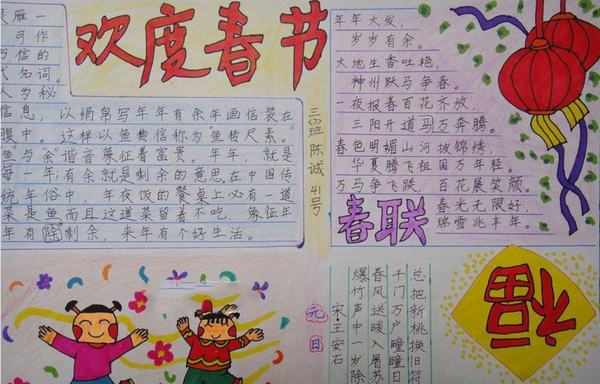 欢度春节
雁一
可作
写信的
代名词。
人为秘
信息，以绢帛写年年有余年画信装在
眼中。这样以鱼传信称为鱼传尺素。
鱼与余谐音象征着富贵。年年，就是
每一年有余就是剩余的意思在中国传
统年俗中，年夜饭的餐桌上必有一道
菜是鱼而且这道菜留着不吃，象征年
年有剩余，来年有个好生活。
班 陈诚 41号
年年大发，
岁岁有余。
大地生香吐艳，
神州跃马争春。
一夜报春百花齐放，
三阳开道万马奔腾。
春色明媚山河披锦绣，
华夏腾飞祖国万年轻。
万马争飞跃，百花展笑颜。
春光无限好，
瑞雪兆丰年。
春联
元日
宋·王安石
爆竹声中一岁除
春风送暖入屠苏
千门万户瞳瞳日
总把新桃换旧符
福